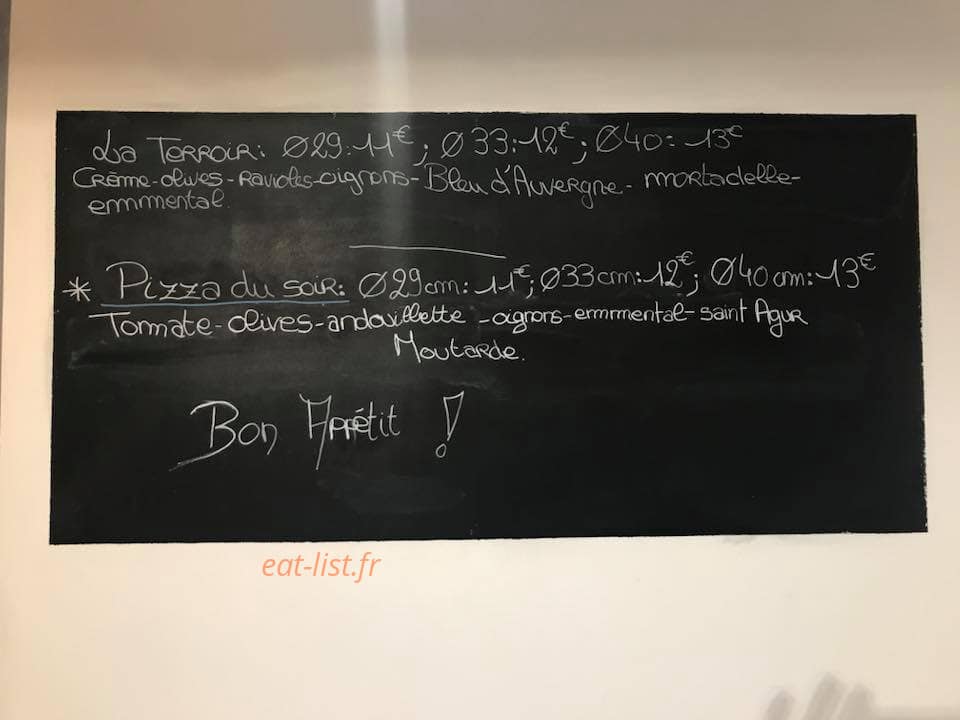 La Terroir: Ø29:11€; Ø33:12€; Ø40= 13€
Crème-olives-Ravioles-oignons-Bleu d'Auvergne-mortadelle-
emmental.
* Pizza du soir: Ø29cm:11€; Ø33cm:12€; Ø40cm:13€
Tomate-olives-andouillette-oignons-emmental-saint Agur
Moutarde.
Bon Appétit !
eat-list.fr